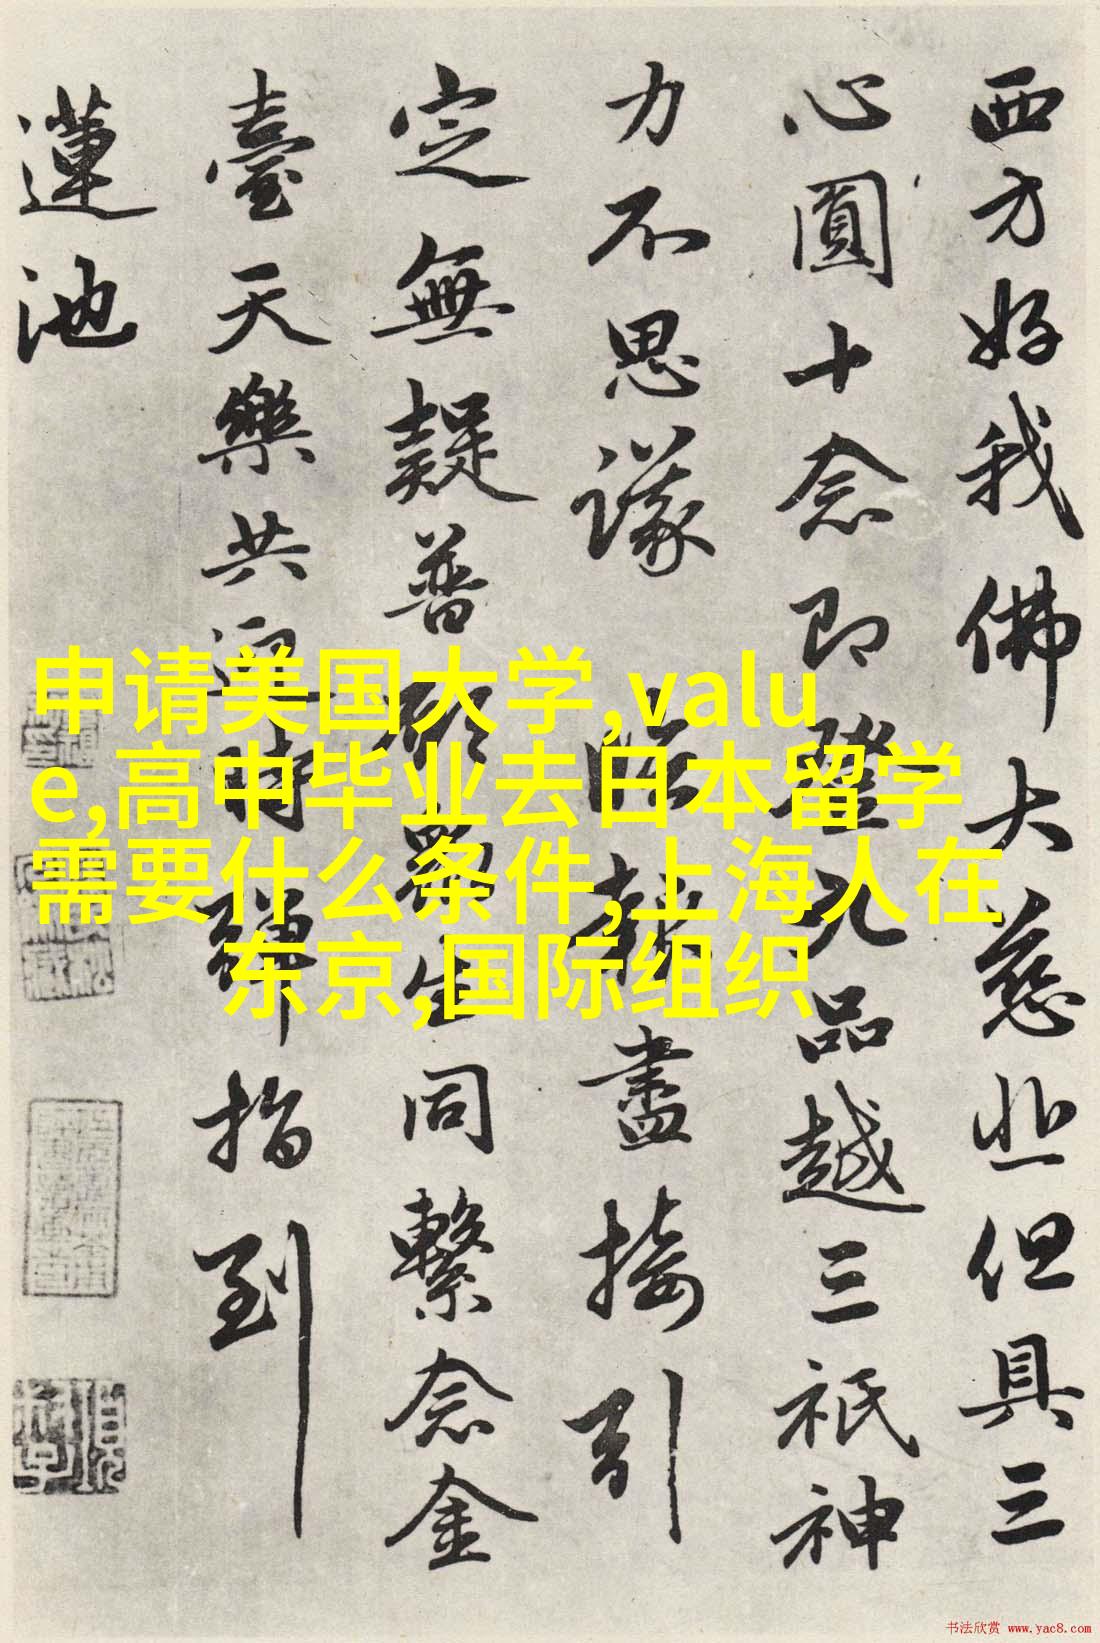 西方好我佛大慈悲但具三
心圓十念即登九品越三祇神
力不思議臨報盡接引
定無疑普願眾生同繫念金
臺天樂共迎時彈指到
蓮池
申请美国大学,valu
e,高中毕业去日本留学
需要什么条件,上海人在
东京,国际组织
书法欣赏 www.yac8.com